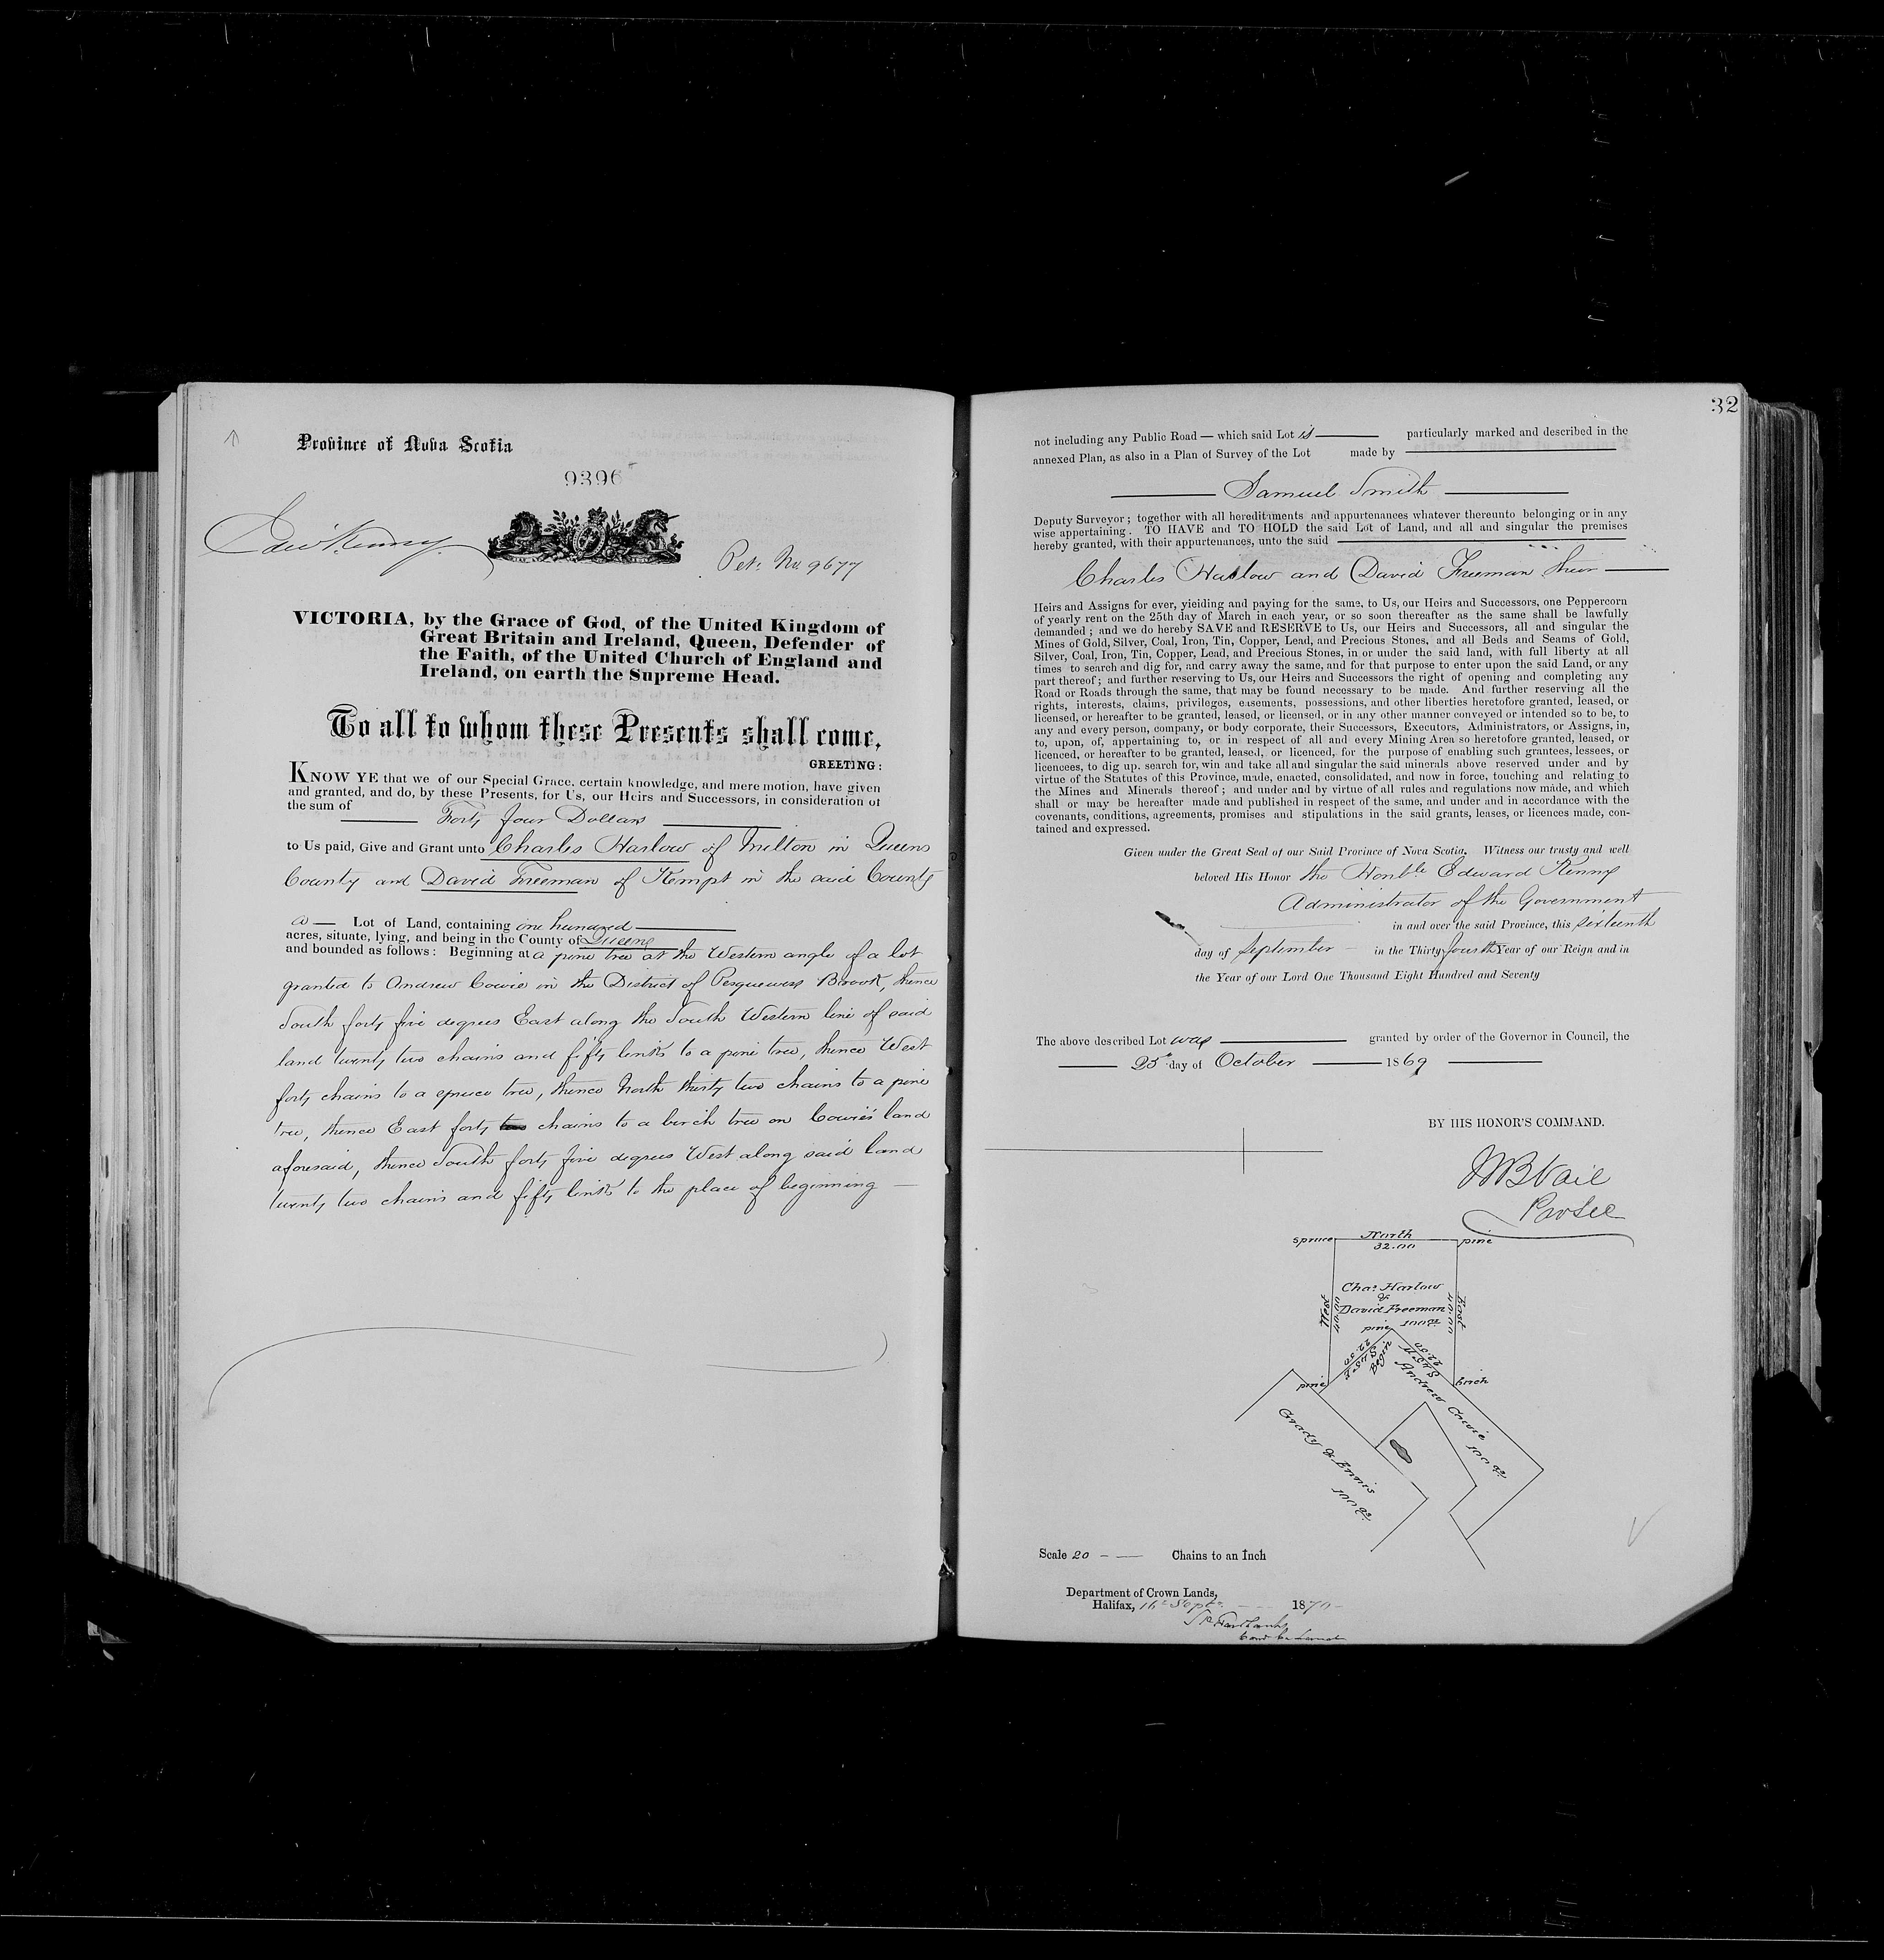 Province of Nova Scotia
9396
Edw Kenny
Pet. No. 9677
VICTORIA, by the Grace of God, of the United Kingdom of
Great Britain and Ireland, Queen, Defender of
the Faith, of the United Church of England and
Ireland, on earth the Supreme Head.
To all to whom these Presents shall come,
GREETING:
KNOW YE that we of our Special Grace, certain knowledge, and mere motion, have given
and granted, and do, by these Presents, for Us, our Heirs and Successors, in consideration of
the sum of Forty four Dollars
to Us paid, Give and Grant unto Charles Harlow of Milton in Queens
County and David Freeman of Kempt in the said County
a Lot of Land, containing one hundred
acres, situate, lying, and being in the County of Queens
and bounded as follows: Beginning at a pine tree at the Western angle of a lot
granted to Andrew Cowie in the District of Pesquewess Brook, thence
South forty five degrees East along the South Western line of said
land twenty two chains and fifty links to a pine tree, thence West
forty chains to a spruce tree, thence North thirty two chains to a pine
tree, thence East forty two chains to a birch tree on Cowie's land
aforesaid, thence South forty five degrees West along said land
twenty two chains and fifty links to the place of beginning —
32
not including any Public Road — which said Lot is particularly marked and described in the
annexed Plan, as also in a Plan of Survey of the Lot made by
Samuel Smith
Deputy Surveyor; together with all hereditments and appurtenances whatever thereunto belonging or in any
wise appertaining. TO HAVE and TO HOLD the said Lot of Land, and all and singular the premises
hereby granted, with their appurtenances, unto the said
Charles Harlow and David Freeman their
Heirs and Assigns for ever, yieiding and paying for the same, to Us, our Heirs and Successors, one Peppercorn
of yearly rent on the 25th day of March in each year, or so soon thereafter as the same shall be lawfully
demanded; and we do hereby SAVE and RESERVE to Us, our Heirs and Successors, all and singular the
Mines of Gold, Silver, Coal, Iron, Tin, Copper, Lead, and Precious Stones, and all Beds and Seams of Gold,
Silver, Coal, Iron, Tin, Copper, Lead, and Precious Stones, in or under the said land, with full liberty at all
times to search and dig for, and carry away the same, and for that purpose to enter upon the said Land, or any
part thereof; and further reserving to Us, our Heirs and Successors the right of opening and completing any
Road or Roads through the same, that may be found necessary to be made. And further reserving all the
rights, interests, claims, privileges, easements, possessions, and other liberties heretofore granted, leased, or
licensed, or hereafter to be granted, leased, or licensed, or in any other manner conveyed or intended so to be, to
any and every person, company, or body corporate, their Successors, Executors, Administrators, or Assigns, in,
to, upon, of, appertaining to, or in respect of all and every Mining Area so heretofore granted, leased, or
licenced, or hereafter to be granted, leased, or licenced, for the purpose of enabling such grantees, lessees, or
licencees, to dig up, search for, win and take all and singular the said minerals above reserved under and by
virtue of the Statutes of this Province, made, enacted, consolidated, and now in force, touching and relating to
the Mines and Minerals thereof; and under and by virtue of all rules and regulations now made, and which
shall or may be hereafter made and published in respect of the same, and under and in accordance with the
covenants, conditions, agreements, promises and stipulations in the said grants, leases, or licences made, con-
tained and expressed.
Given under the Great Seal of our Said Province of Nova Scotia. Witness our trusty and well
beloved His Honor the Honble Edward Kenny
Administrator of the Government
in and over the said Province, this sixteenth
day of September in the Thirty fourth Year of our Reign and in
the Year of our Lord One Thousand Eight Hundred and Seventy
The above described Lot was granted by order of the Governor in Council, the
25th day of October 1869
BY HIS HONOR'S COMMAND.
W B Vail
Prov Sec
spruce North pine
32.00
Chas Harlow
&
David Freeman
100 as
West 40.00
East 40.00
pine
Begin
S 45 E 22.50
S 45 W 22.50
pine
birch
Andrew Cowie 100 as
Grady & Ennis 100 as
Scale 20 Chains to an Inch
Department of Crown Lands,
Halifax, 16th Sept. 1870
S P Fairbanks